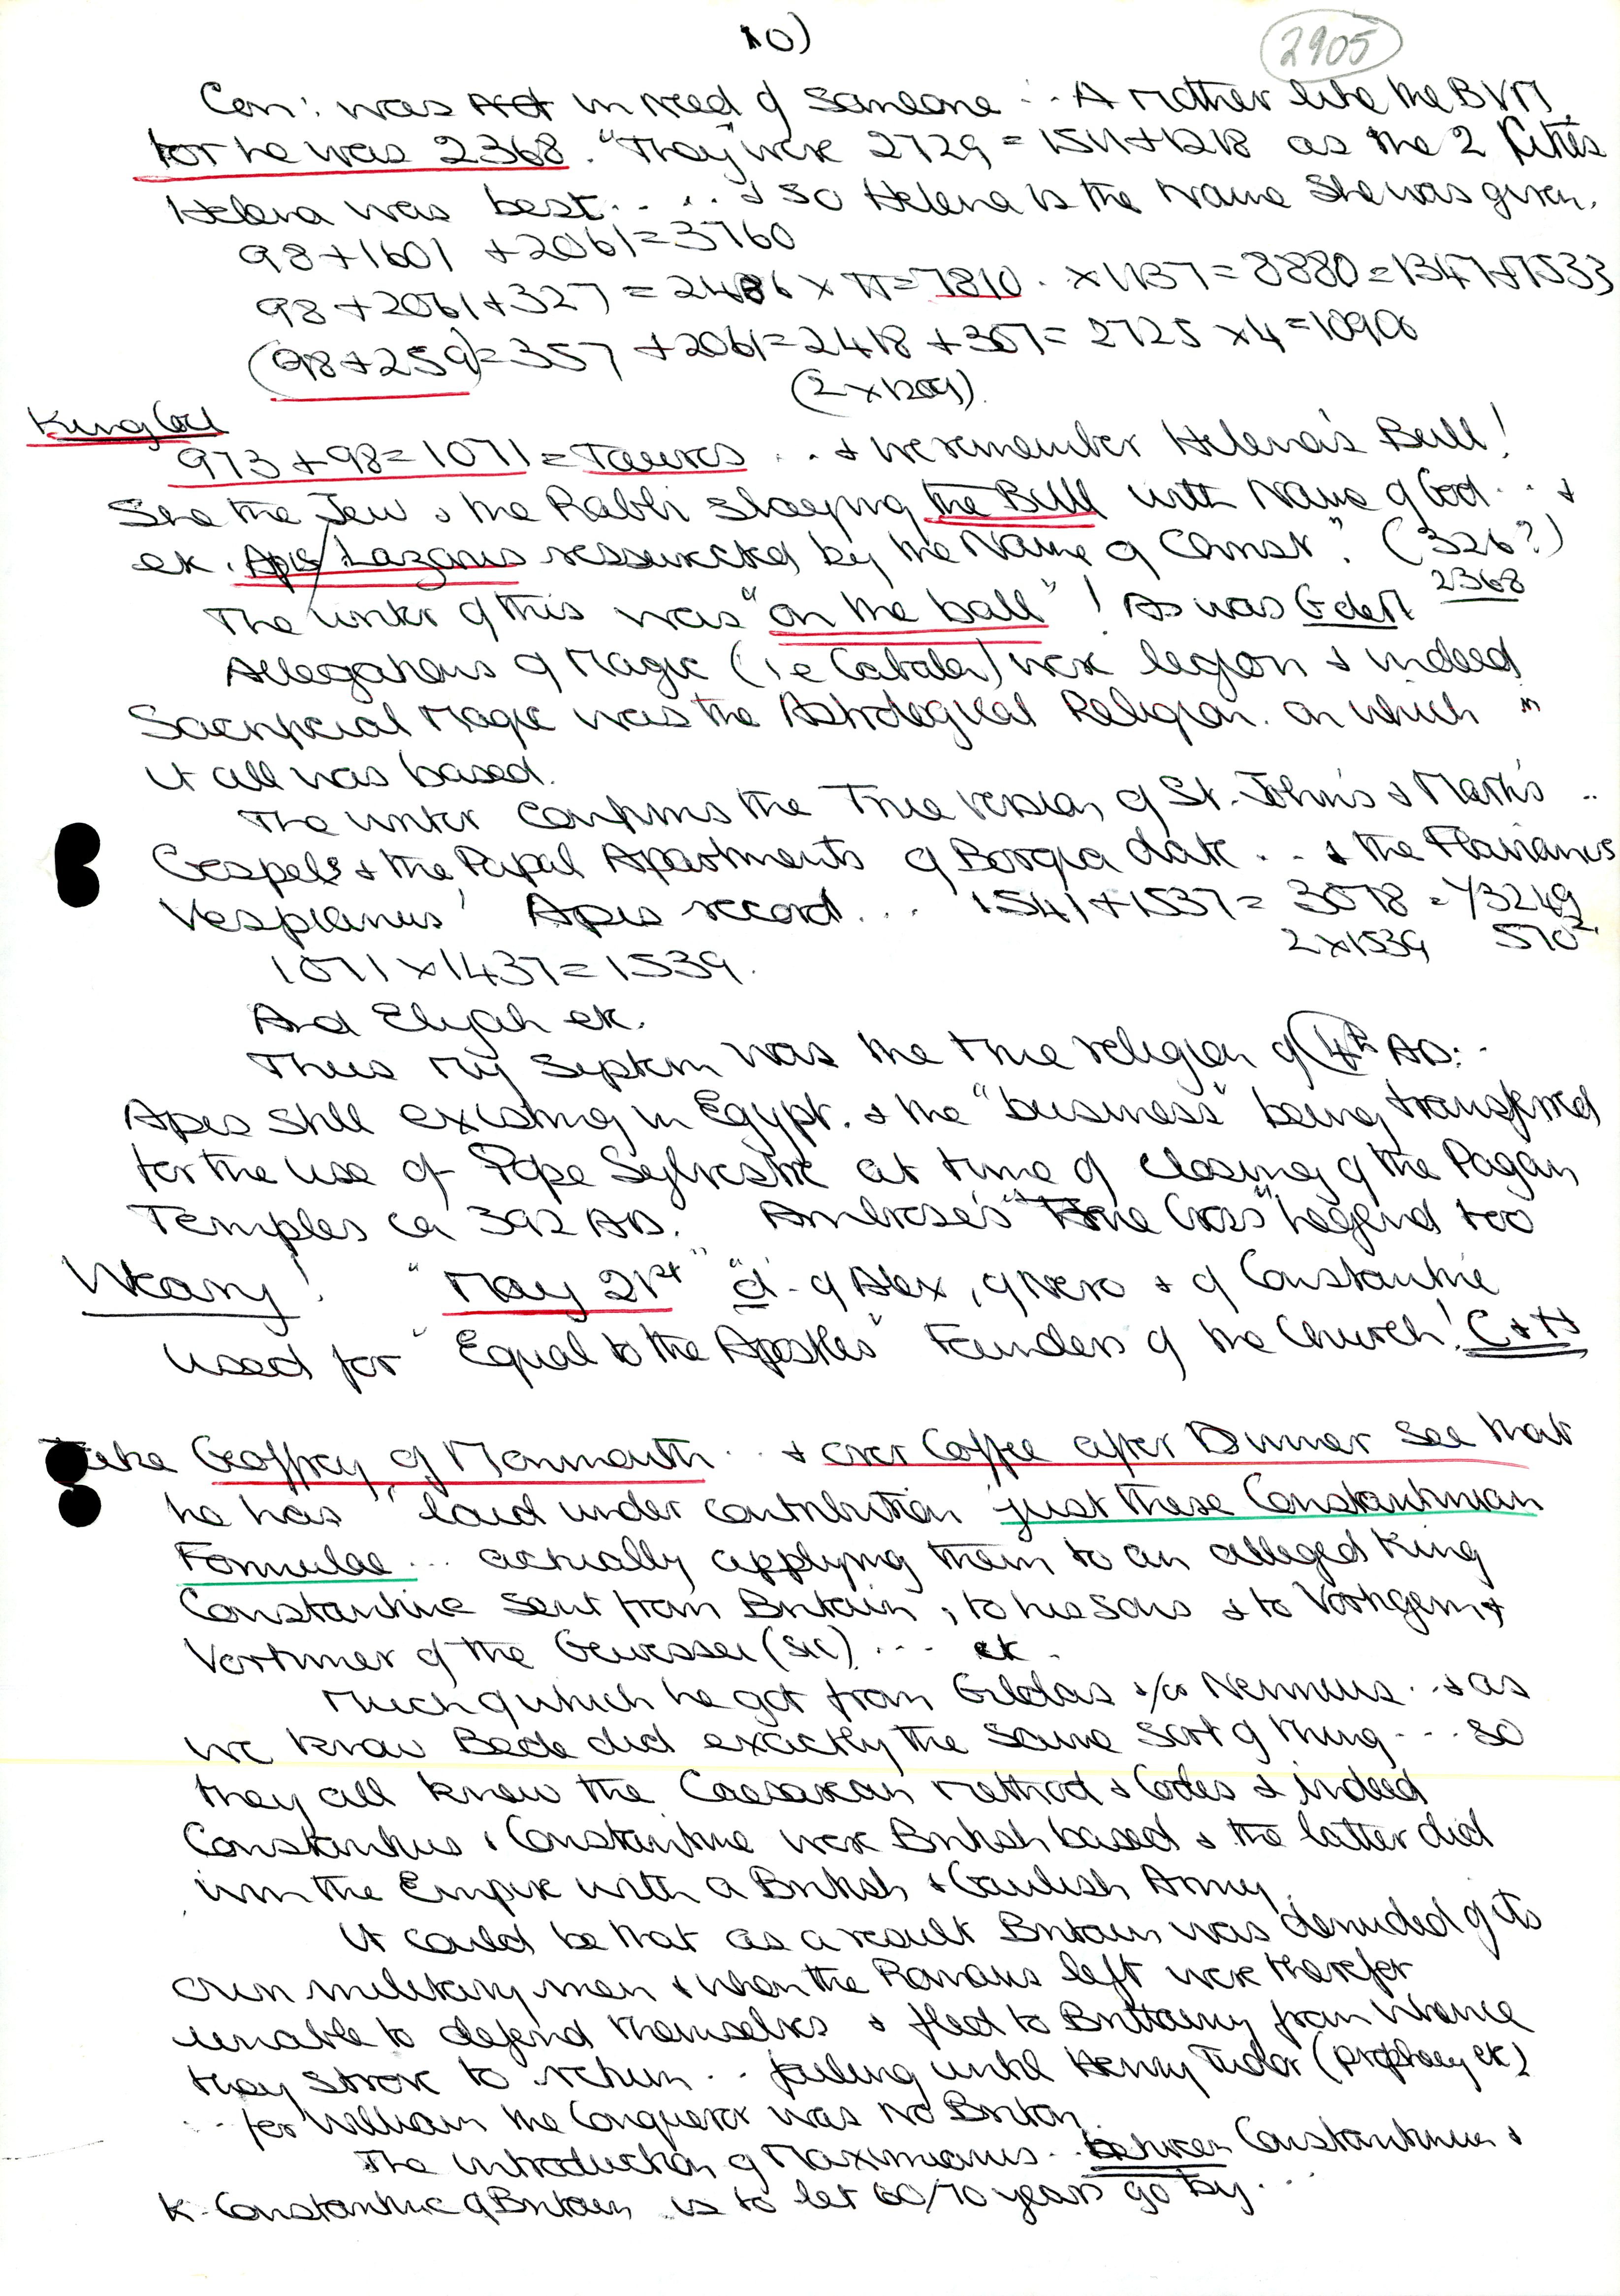 10)
2905
Con: was in need of Someone ... A Mother like the BVM
for he was 2368. "They" were 2729 = 1511+1218 as the 2
Helena was best .... & so Helena is the Name she was given.
98+1601 +2061=3760
98+2061+327 = 2486 x π=7810. x1137=8880=1347+7533
(98+259)=357 +2061=2418 +307= 2725 x4=10900
(2x1209)
King Coel
973+98=1071=Taurus ... & we remember Helena's Bull!
She the Jew & the Rabbi slaying the Bull with Name of God ... &
etc. Apis/Lazarus ressurected by the Name of Christ". (326?)
2368
The writer of this was "on the ball"! As was G de M
Allegations of Magic (ie Cabala) were legion & indeed
Sacrificial Magic was the Astrological Religion on which
it all was based.
The writer confirms the True version of St. John's & Mark's ..
Gospels & the Papal Apartments of Borgia date ... & the Flavianus
Vespianus' Apis record ... 1541+1537= 3078 = √3249
2x1539 570²
1071x1437=1539.
And Elijah etc.
Thus my System was the true religion of 4th AD:-
Apis still existing in Egypt. & the "business" being transferred
for the use of Pope Sylvestre at time of closing of the Pagan
Temples ca 392 AD. Ambrose's "True Cross" Legend too
Weary! "May 21st" "d" of Alex, of Nero & of Constantine
used for "Equal to the Apostles" Founders of the Church! C & H
Take Geoffrey of Monmouth .. & over Coffee after Dinner see that
he has "laid under contribution" just these Constantinian
Formulae ... actually applying them to an alleged King
Constantine sent from Britain, to his sons & to Vortigern &
Vortimer of the Gewissei (sic) ... etc.
Much of which he got from Gildas &/or Nennius .. & as
we know Bede did exactly the same sort of thing ... so
they all knew the Caesarean Method & Codes & indeed
Constantius & Constantine were British based & the latter did
win the Empire with a British & Gaulish Army.
It could be that as a result Britain was denuded of its
own military men & when the Romans left were therefor
unable to defend themselves & fled to Brittany from whence
they strove to return .. failing until Henry Tudor (prophecy etc)
.. for William the Conqueror was no Briton.
The introduction of Maximianus .. between Constantinus &
K. Constantine of Britain is to let 60/70 years go by ...